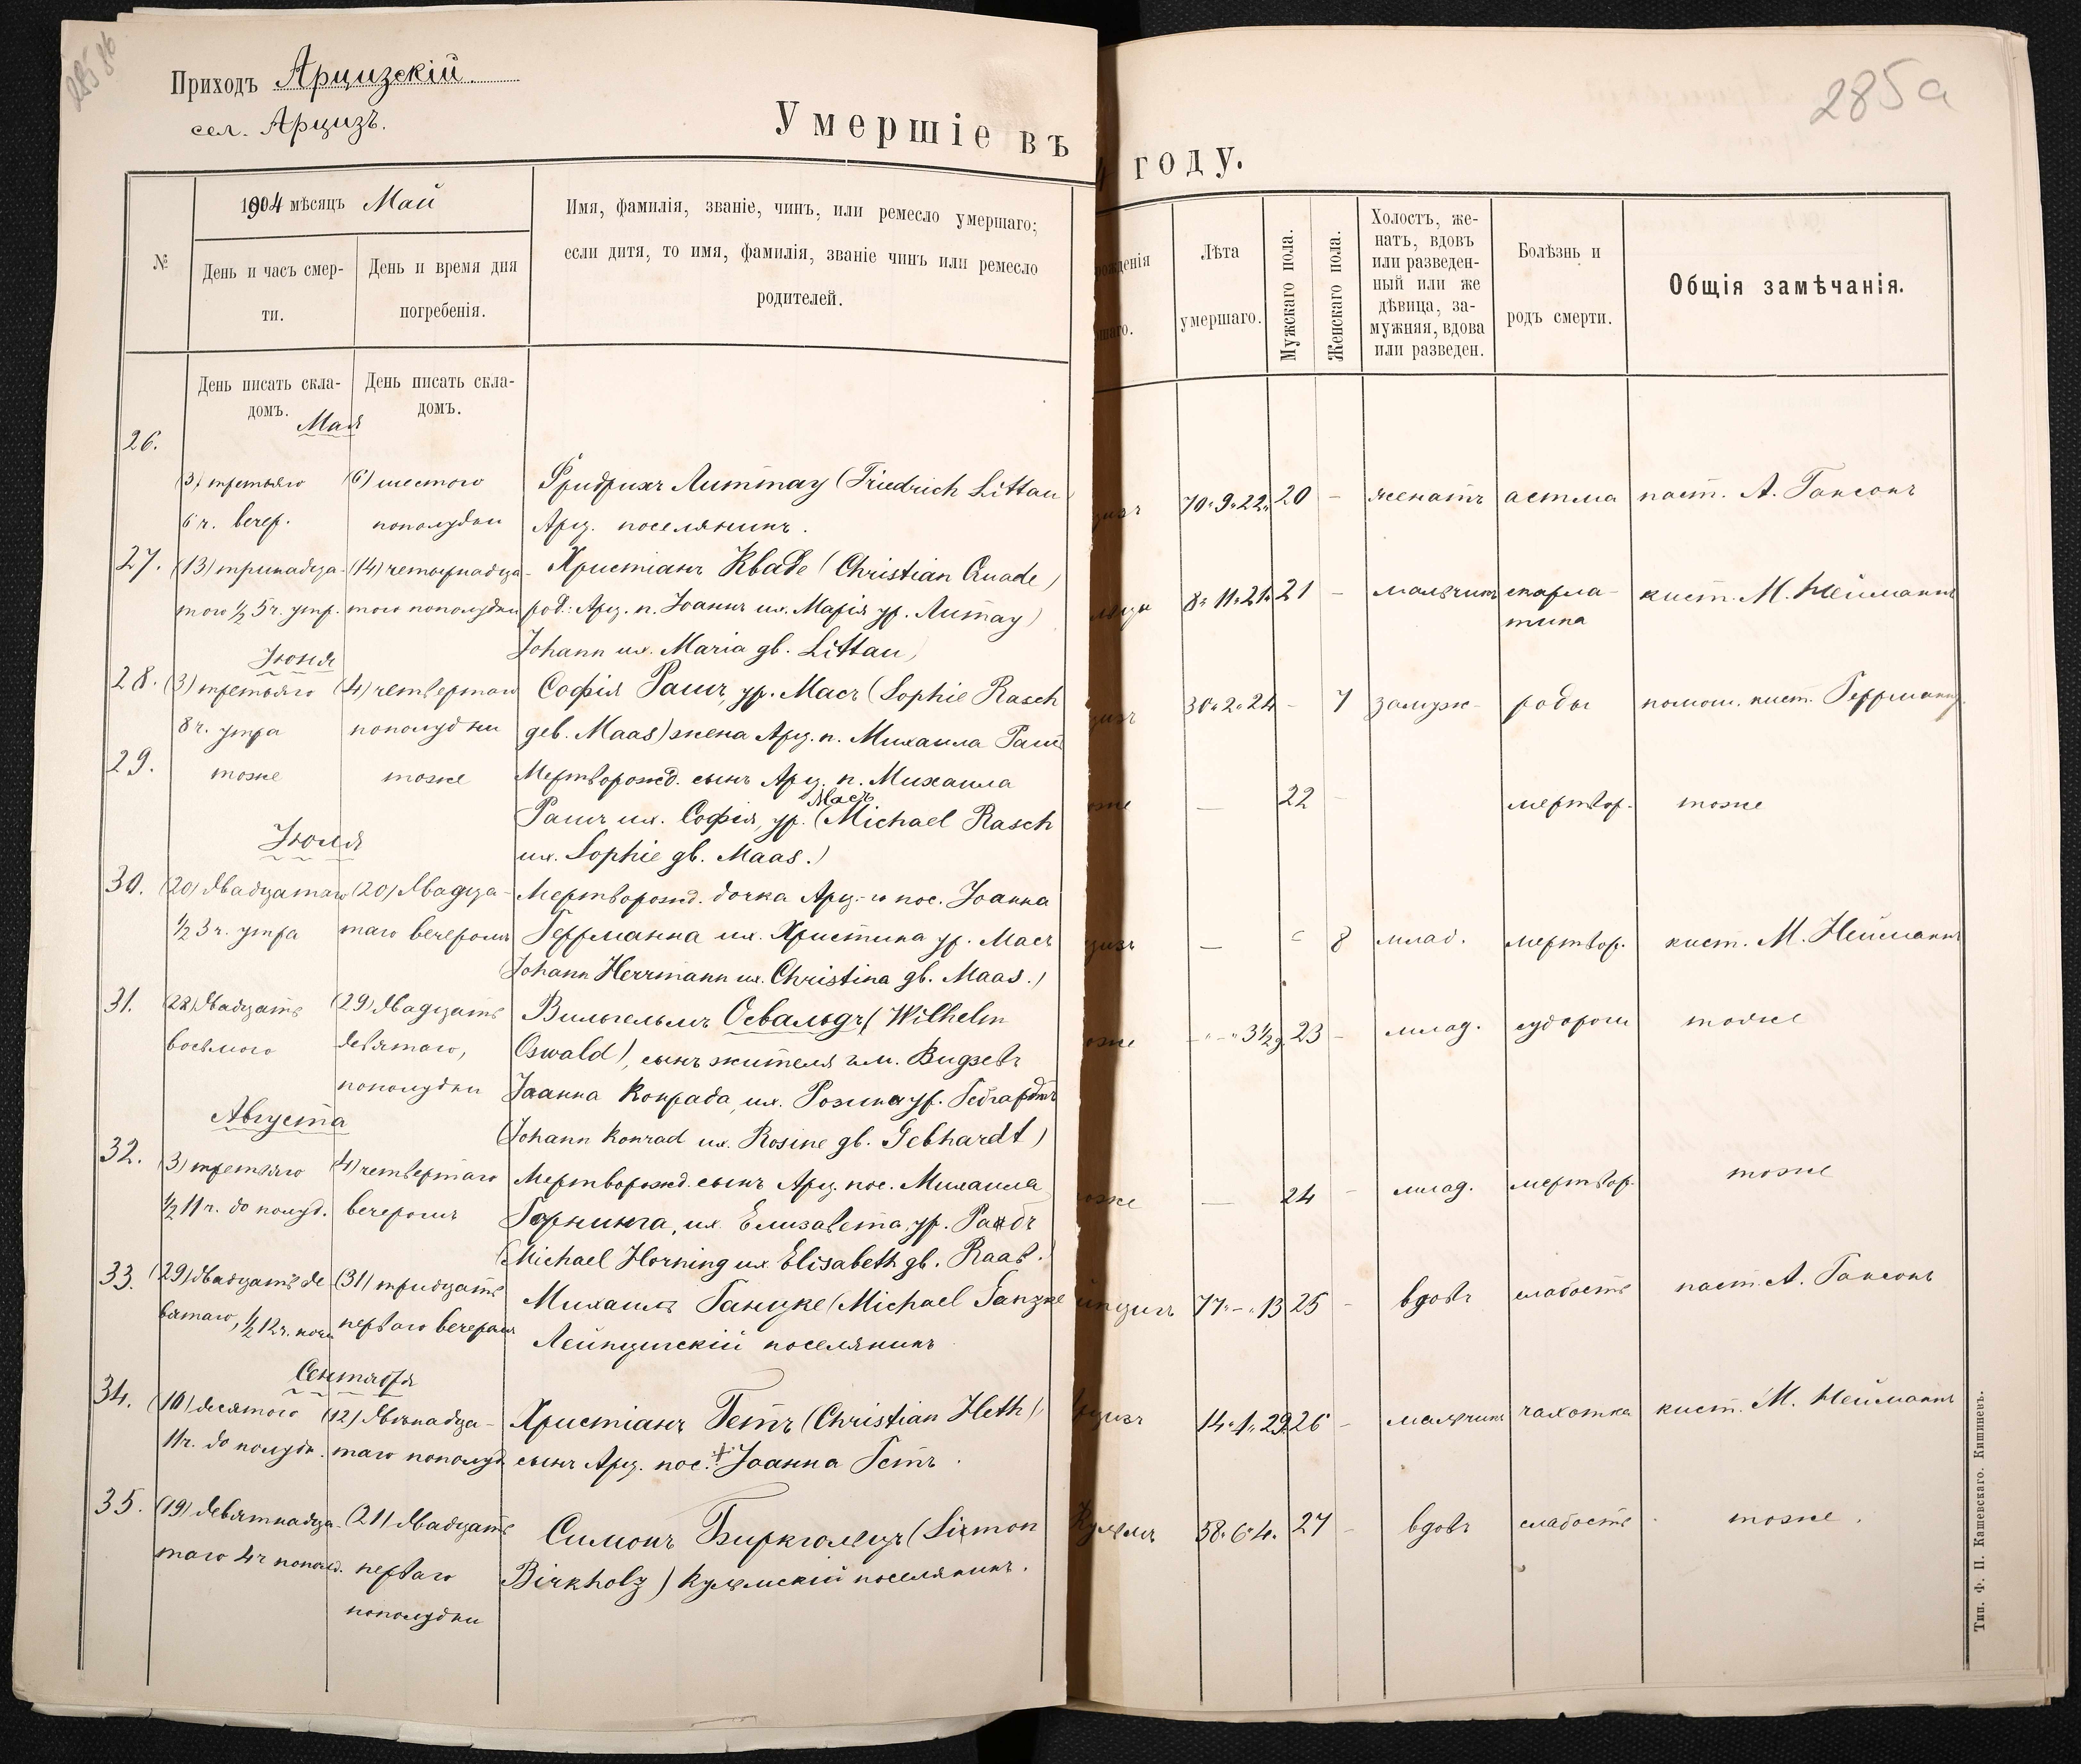 285 а
Приходъ Арцизскій.
сел. Арцизъ.
Умершіе въ
4 году.
№
1904 мѣсяцъ Май
День и часъ смер-
ти.
День и время дня
погребенія.
Имя, фамилія, званіе, чинъ, или ремесло умершаго;
если дитя, то имя, фамилія, званіе чинъ или ремесло
родителей.
рожденія
ршаго.
Лѣта
умершаго.
Мужскаго пола.
Женскаго пола.
Холостъ, же-
натъ, вдовъ
или разведен-
ный или же
дѣвица, за-
мужняя, вдова
или разведен.
Болѣзнь и
родъ смерти.
Общія замѣчанія.
День писать скла-
домъ.
День писать скла-
домъ.
Мая
26.
(3) третьяго
6 ч. вечер.
(6) шестого
пополудни
Фридрихъ Литтау (Friedrich Littau)
Арц. поселянинъ.
цизъ
70 " 9 " 22 "
20
-
женатъ
астма
паст. А. Гансонъ
27.
(13) тринадца-
того ½ 5 ч. утр.
(14) четырнадца-
того пополудни
Христіанъ Кваде (Christian Quade)
род.: Арц. п. Іоаннъ их. Марія ур. Литау)
Johann их. Maria gb. Littau)
8 " 11 " 21 "
21
-
мальчикъ
скарла-
тина
кист. М. Нейманнъ
Іюня
28.
(3) третьяго
8 ч. утра
(4) четвертаго
пополудни
Софія Рашъ, ур. Масъ (Sophie Rasch
geb. Maas) жена Арц. п. Михаила Рашъ
цизъ
30 " 2 " 24
-
7
замуж-
роды
помощ. кист. Геррманнъ
29.
тоже
тоже
Мертворожд. сынъ Арц. п. Михаила
Масъ
Рашъ их. Софія, ур. (Michael Rasch
их. Sophie gb. Maas.)
оже
—
22
-
мертвор.
тоже
Іюля
30.
(20) двадцатаго
½ 3 ч. утра
(20) двадца-
таго вечеромъ
Мертворожд. дочка Арц-го пос. Іоанна
Геррманна их. Христина ур. Масъ
Johann Herrmann их. Christina gb. Maas.)
цизъ
—
8
млад.
мертвор.
кист. М. Нейманнъ
31.
(28) двадцать
восьмого
(29) двадцать
девятаго,
пополудни
Вильгельмъ Освальдъ (Wilhelm
Oswald), сынъ жителя им. Видзевъ
Іоанна Конрада, их. Розина ур. Гебгардтъ
(Johann Konrad их. Rosine gb. Gebhardt)
оже
- " - " 3½ д.
23
-
млад.
судороги
тоже
Августа
32.
(3) третьяго
½ 11 ч. до полуд.
(4) четвертаго
вечеромъ
Мертворожд. сынъ Арц. пос. Михаила
Горнинга, их. Елизавета, ур. Раабъ
(Michael Horning их Elisabeth gb. Raab.)
оже
—
24
-
млад.
мертвор.
тоже
33.
(29) двадцать де
вятаго, ½ 12 ч. ночи
(31) тридцать
перваго вечеромъ
Михаилъ Ганцке (Michael Ganzke
Лейпцигскій поселянинъ
йпцигъ
77 " - " 13
25
-
вдовъ
слабость
паст. А. Гансонъ
Сентября
34.
(10) десятого
11 ч. до полудн.
(12) двѣнадца-
таго пополуд
Христіанъ Гетъ (Christian Heth),
сынъ Арц. пос. † Іоанна Гетъ.
рцизъ
14 " 1 " 29
26
-
мальчикъ
чахотка
кист. М. Нейманнъ
35.
(19) девятнадца-
таго 4 ч пополд.
(21) двадцать
перваго
пополудни
Симонъ Биркгольцъ (Simon
Birkholz) Кульмскій поселянинъ.
Кульмъ
58 " 6 " 4.
27
-
вдовъ
слабость
тоже.
Тип. Ф. П. Кашевскаго. Кишиневъ.